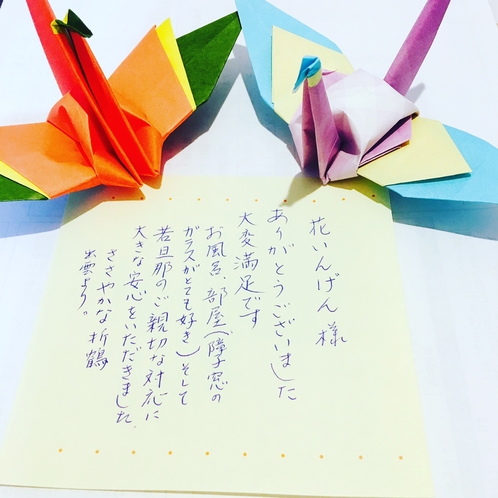 花いんげん様
ありがとうございました
大変満足です
お風呂、部屋(障子窓の
ガラスがとても好き)そして
若旦那のご親切な対応に
大きな安心をいただきました。
ささやかな折鶴
出雲より。